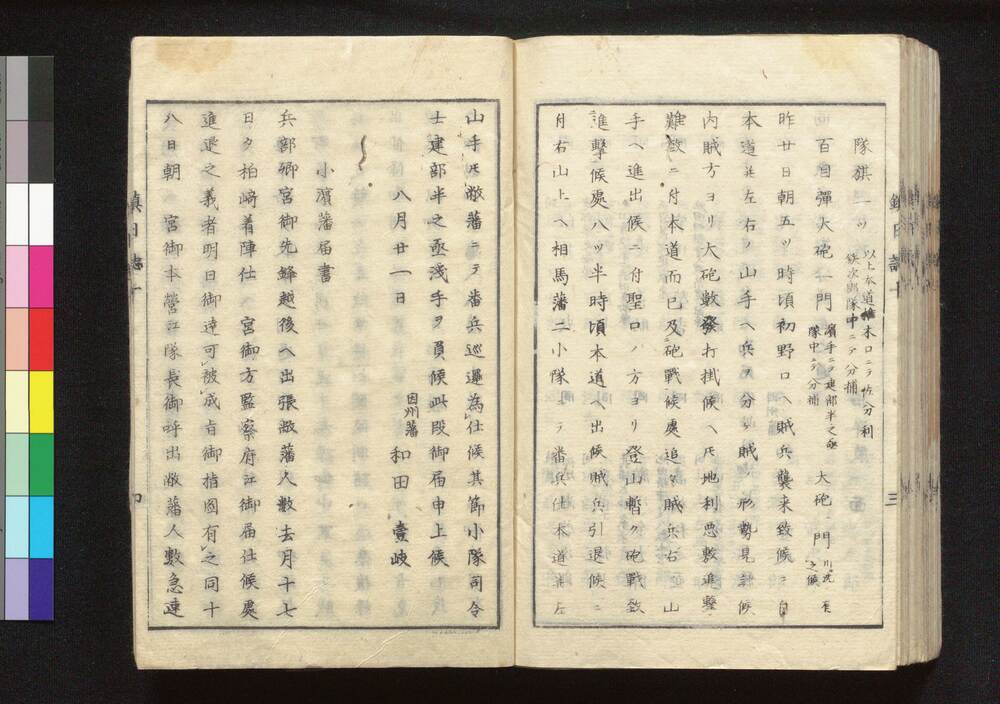 隊旗一ツ 以上本道椎木口ニテ佐分利
鉄次郎隊中ニテ分捕
百目弾大砲一門 濱手ニテ建部半之亟
隊中ニテ分捕
大砲一門
昨廿日朝五ツ時頃初野口ヘ賊兵襲来致候ニ付
本道并左右ノ山手ヘ兵ヲ分ケ賊ノ形勢見計候
内賊方ヨリ大砲數發打掛候ヘ𪜈地利悪敷進撃
難致ニ付本道而已及砲戰候處追々賊兵右ノ山
手ヘ進出候ニ付聖口ノ方ヨリ登山暫ク砲戰致
進撃候處八ツ半時頃本道ヘ出候賊兵引退候ニ
付右山上ヘ相馬藩二小隊ニテ番兵仕本道并左
山手𪜈敝藩ニテ番兵巡邏為仕候其節小隊司令
士建部半之亟淺手ヲ負候此段御届申上候
八月廿一日
因州藩 和田 壹岐
小濱藩届書
兵部卿宮御先鋒越後ヘ出張敝藩人數去月十七
日夕柏﨑着陣仕 宮御方監察府江御届仕候處
進退之義者明日御達可被成旨御指圖有之同十
八日朝 宮御本營江隊長御呼出敝藩人數急速
鎮日誌十
三
鎮日誌十
四